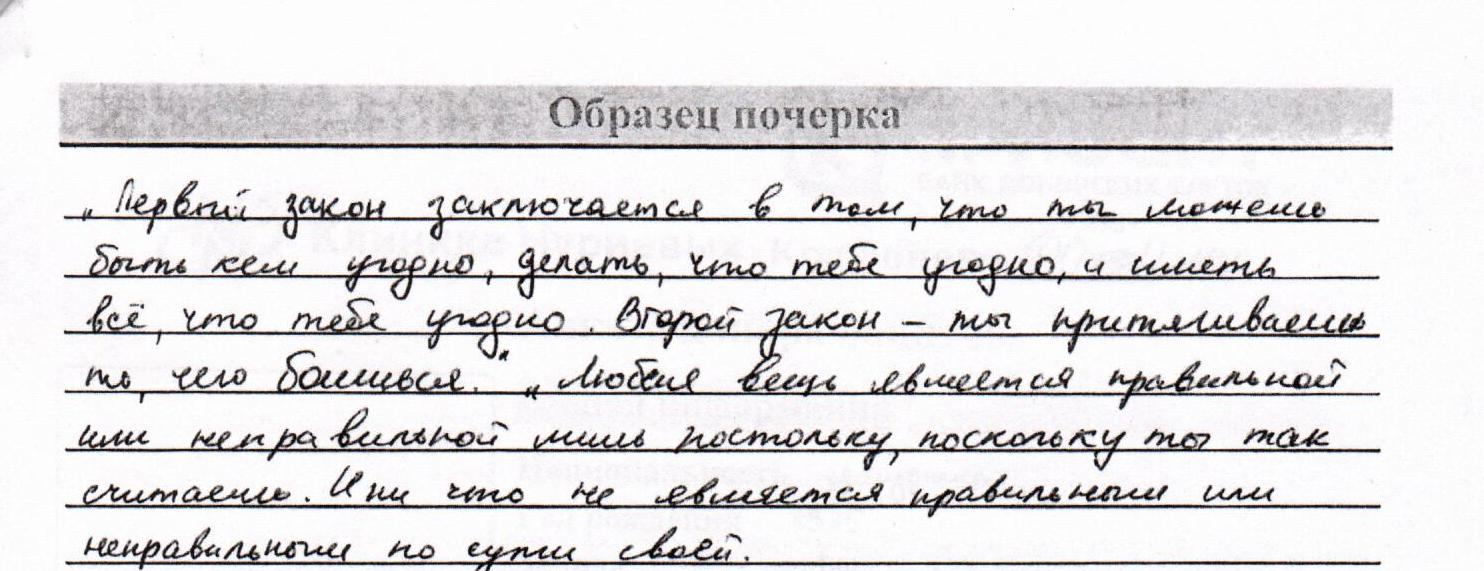 Образец почерка
„Первый закон заключается в том, что ты можешь
быть кем угодно, делать, что тебе угодно, и иметь
всё, что тебе угодно. Второй закон – ты притягиваешь
то, чего боишься." „Любая вещь является правильной
или неправильной лишь постольку, поскольку ты так
считаешь. И ни что не является правильным или
неправильным по сути своей.